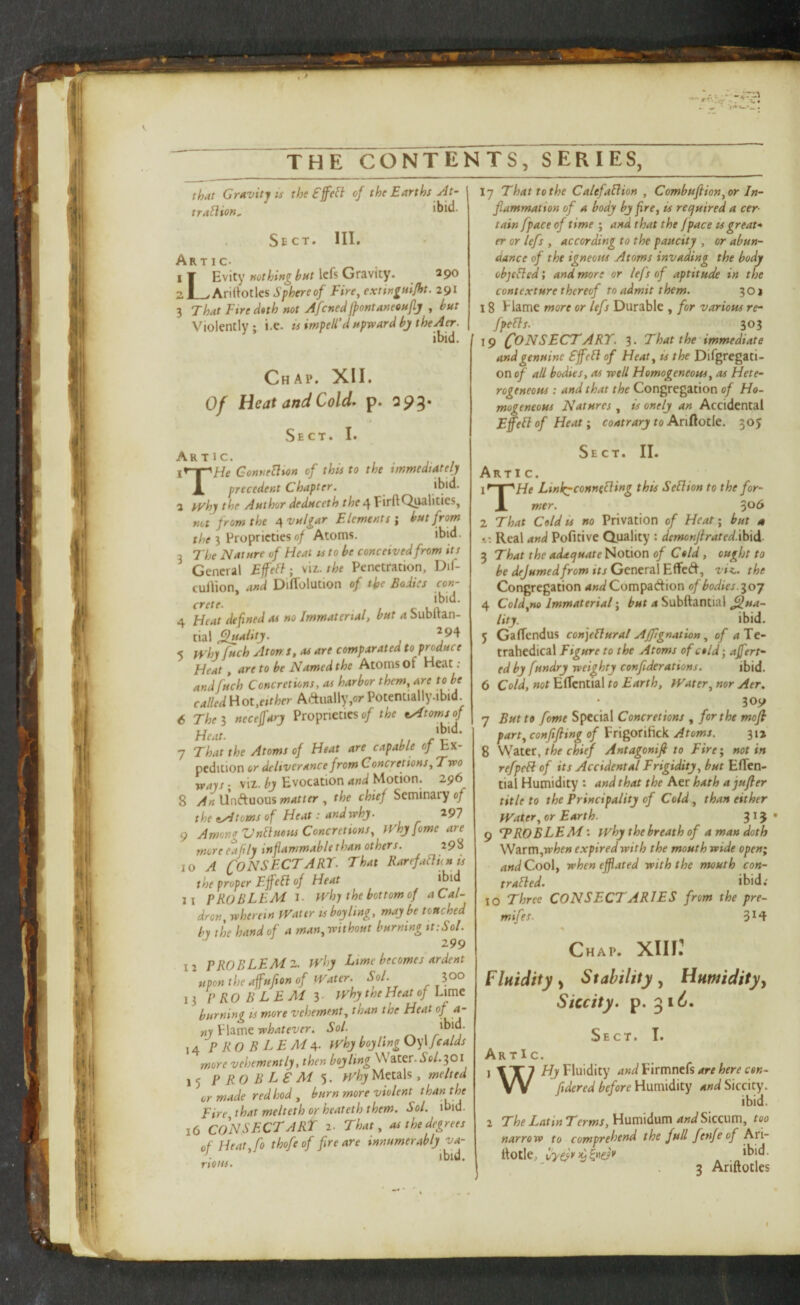 THE CONTENTS, SERIES,
that Gravity is the Effect of the Earths At-
traction. ibid.
SECT. III.
ARTIC.
1 LEvity nothing but less Gravity. 290
2 Aristotles Sphere of Fire, extinguisht. 291
3 That Fire doth not Ascned spontaneously , but
Violently ; i.e. is impell'd upward by the Aer.
ibid.
CHAP. XII.
Of Heat and Cold. p. 293.
SECT. I.
ARTIC.
1 THe Connection of this to the immediately
precedent Chapter. ibid.
2 Why the Author deduceth the 4 First Qualities,
not from the 4 vulgar Elements ; but from
the 3 Proprieties of Atoms. ibid.
3 The Nature of Heat is to be conceived from its
General Effect ; viz. the Penetration, Dis-
cussion, and Dissolution of the Bodies con-
crete. ibid.
4 Heat defined as no Immaterial, but a Substan-
tial Quality. 294
5 Why such Atoms, as are comparated to produce
Heat , are to be Named the Atoms of Heat :
and such Concretions, as harbor them, are to be
called Hot, either Actually, or Potentially. ibid.
6 The 3 necessary Proprieties of the Atoms of
Heat. ibid.
7 That the Atoms of Heat are capable of Ex-
pedition or deliverance from Concretions, Two
ways ; viz. by Evocation and Motion. 296
8 An Unctuous matter , the chief Seminary of
the Atoms of Heat : and why. 297
9 Among Unctuous Concretions, Why some are
more easily inflammable than others. 298
10 A CONSECTARY. That Rarefaction is
the proper Effect of Heat ibid
11 PROBLEM 1. Why the bottom of a Cal-
dron, wherein Water is boyling, may be touched
by the hand of a man, without burning it: Sol.
299
12 PROBLEM 2. Why Lime becomes ardent
upon the affusion of Water. Sol. 300
13 PROBLEM 3. Why the Heat of Lime
burning is more vehement, than the Heat of a-
ny Flame whatever. Sol. ibid.
14 PROBLEM 4. Why boyling Oyl scalds
more vehemently, then boyling Water. Sol. 301
15 PROBLEM 5. Why Metals , melted
or made red hod , burn more violent than the
Fire, that melteth or heateth them. Sol. ibid.
16 CONSECTARY 2. That , as the degrees
of Heat, so those of fire are innumerably va-
rious. ibid.
17 That to the Calefaction , Combustion, or In-
flammation of a body by fire, is required a cer-
tain space of time ; and that the space is great-
er or less , according to the paucity , or abun-
dance of the igneous Atoms invading the body
objected ; and more or less of aptitude in the
contexture thereof to admit them. 302
18 Flame more or less Durable , for various re-
spects. 303
19 CONSECTARY. 3. That the immediate
and genuine Effect of Heat, is the Disgregati-
on of all bodies, as well Homogeneous, as Hete-
rogeneous : and that the Congregation of Ho-
mogeneous Natures , is onely an Accidental
Effect of Heat ; coatrary to Aristotle. 305
SECT. II.
ARTIC.
1 THe Link-connecting this Section to the for-
mer. 306
2 That Cold is no Privation of Heat ; but a
Real and Positive Quality : demonstrated. ibid.
3 That the adæquate Notion of Cold , ought to
be desumed from its General Effect, viz. the
Congregation and Compaction of bodies. 307
4 Cold, no Immaterial ; but a Substantial Qua-
lity. ibid.
5 Gassendus conjectural Assignation , of a Te-
trahedical Figure to the Atoms of cold ; assert-
ed by sundry weighty considerations. ibid.
6 Cold, not Essential to Earth, Water, nor Aer.
309
7 But to some Special Concretions , for the most
part, consisting of Frigorifick Atoms. 312
8 Water, the chief Antagonist to Fire ; not in
respect of its Accidental Frigidity, but Essen-
tial Humidity : and that the Aer hath a juster
title to the Principality of Cold , than either
Water, or Earth. 313
9 PROBLEM : Why the breath of a man doth
Warm, when expired with the mouth wide open;
and Cool, when efflated with the mouth con-
tracted. ibid:
10 Three CONSECTARIES from the pre-
mises. 314
CHAP. XIII.
Fluidity , Stability , Humidity,
Siccity. p. 316.
SECT. I.
ARTIC.
1 WHy Fluidity and Firmness are here con-
sidered before Humidity and Siccity.
ibid.
2 The Latin Terms, Humidum and Siccum, too
narrow to comprehend the full sense of Ari-
stotle, ὑγρὸν ϗ ξηρὸν ibid.
3 Aristotles